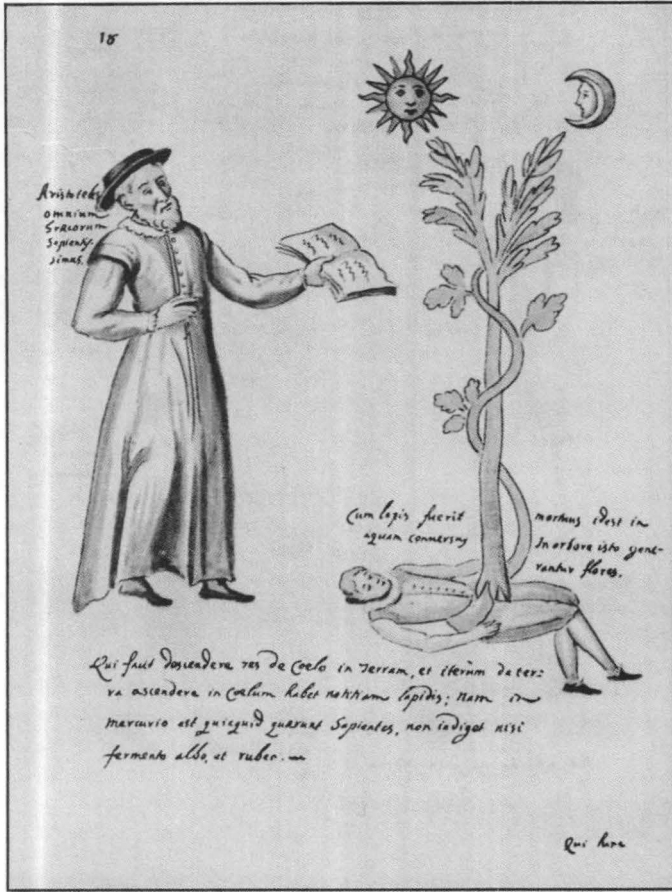 18
Aristoteles
omnium
Græcorum
Sapientis-
simus.
Cum lapis fuerit mortuus idest in
aquam conversus In arbore isto gene-
rantur flores.
Qui facit descendere res de Coelo in Terram, et iterum de ter:
ra ascendere in Coelum habet notitiam lapidis; Nam in
mercurio est quicquid quærunt Sapientes, non indiget nisi
fermento albo, et rubeo.
Qui hanc